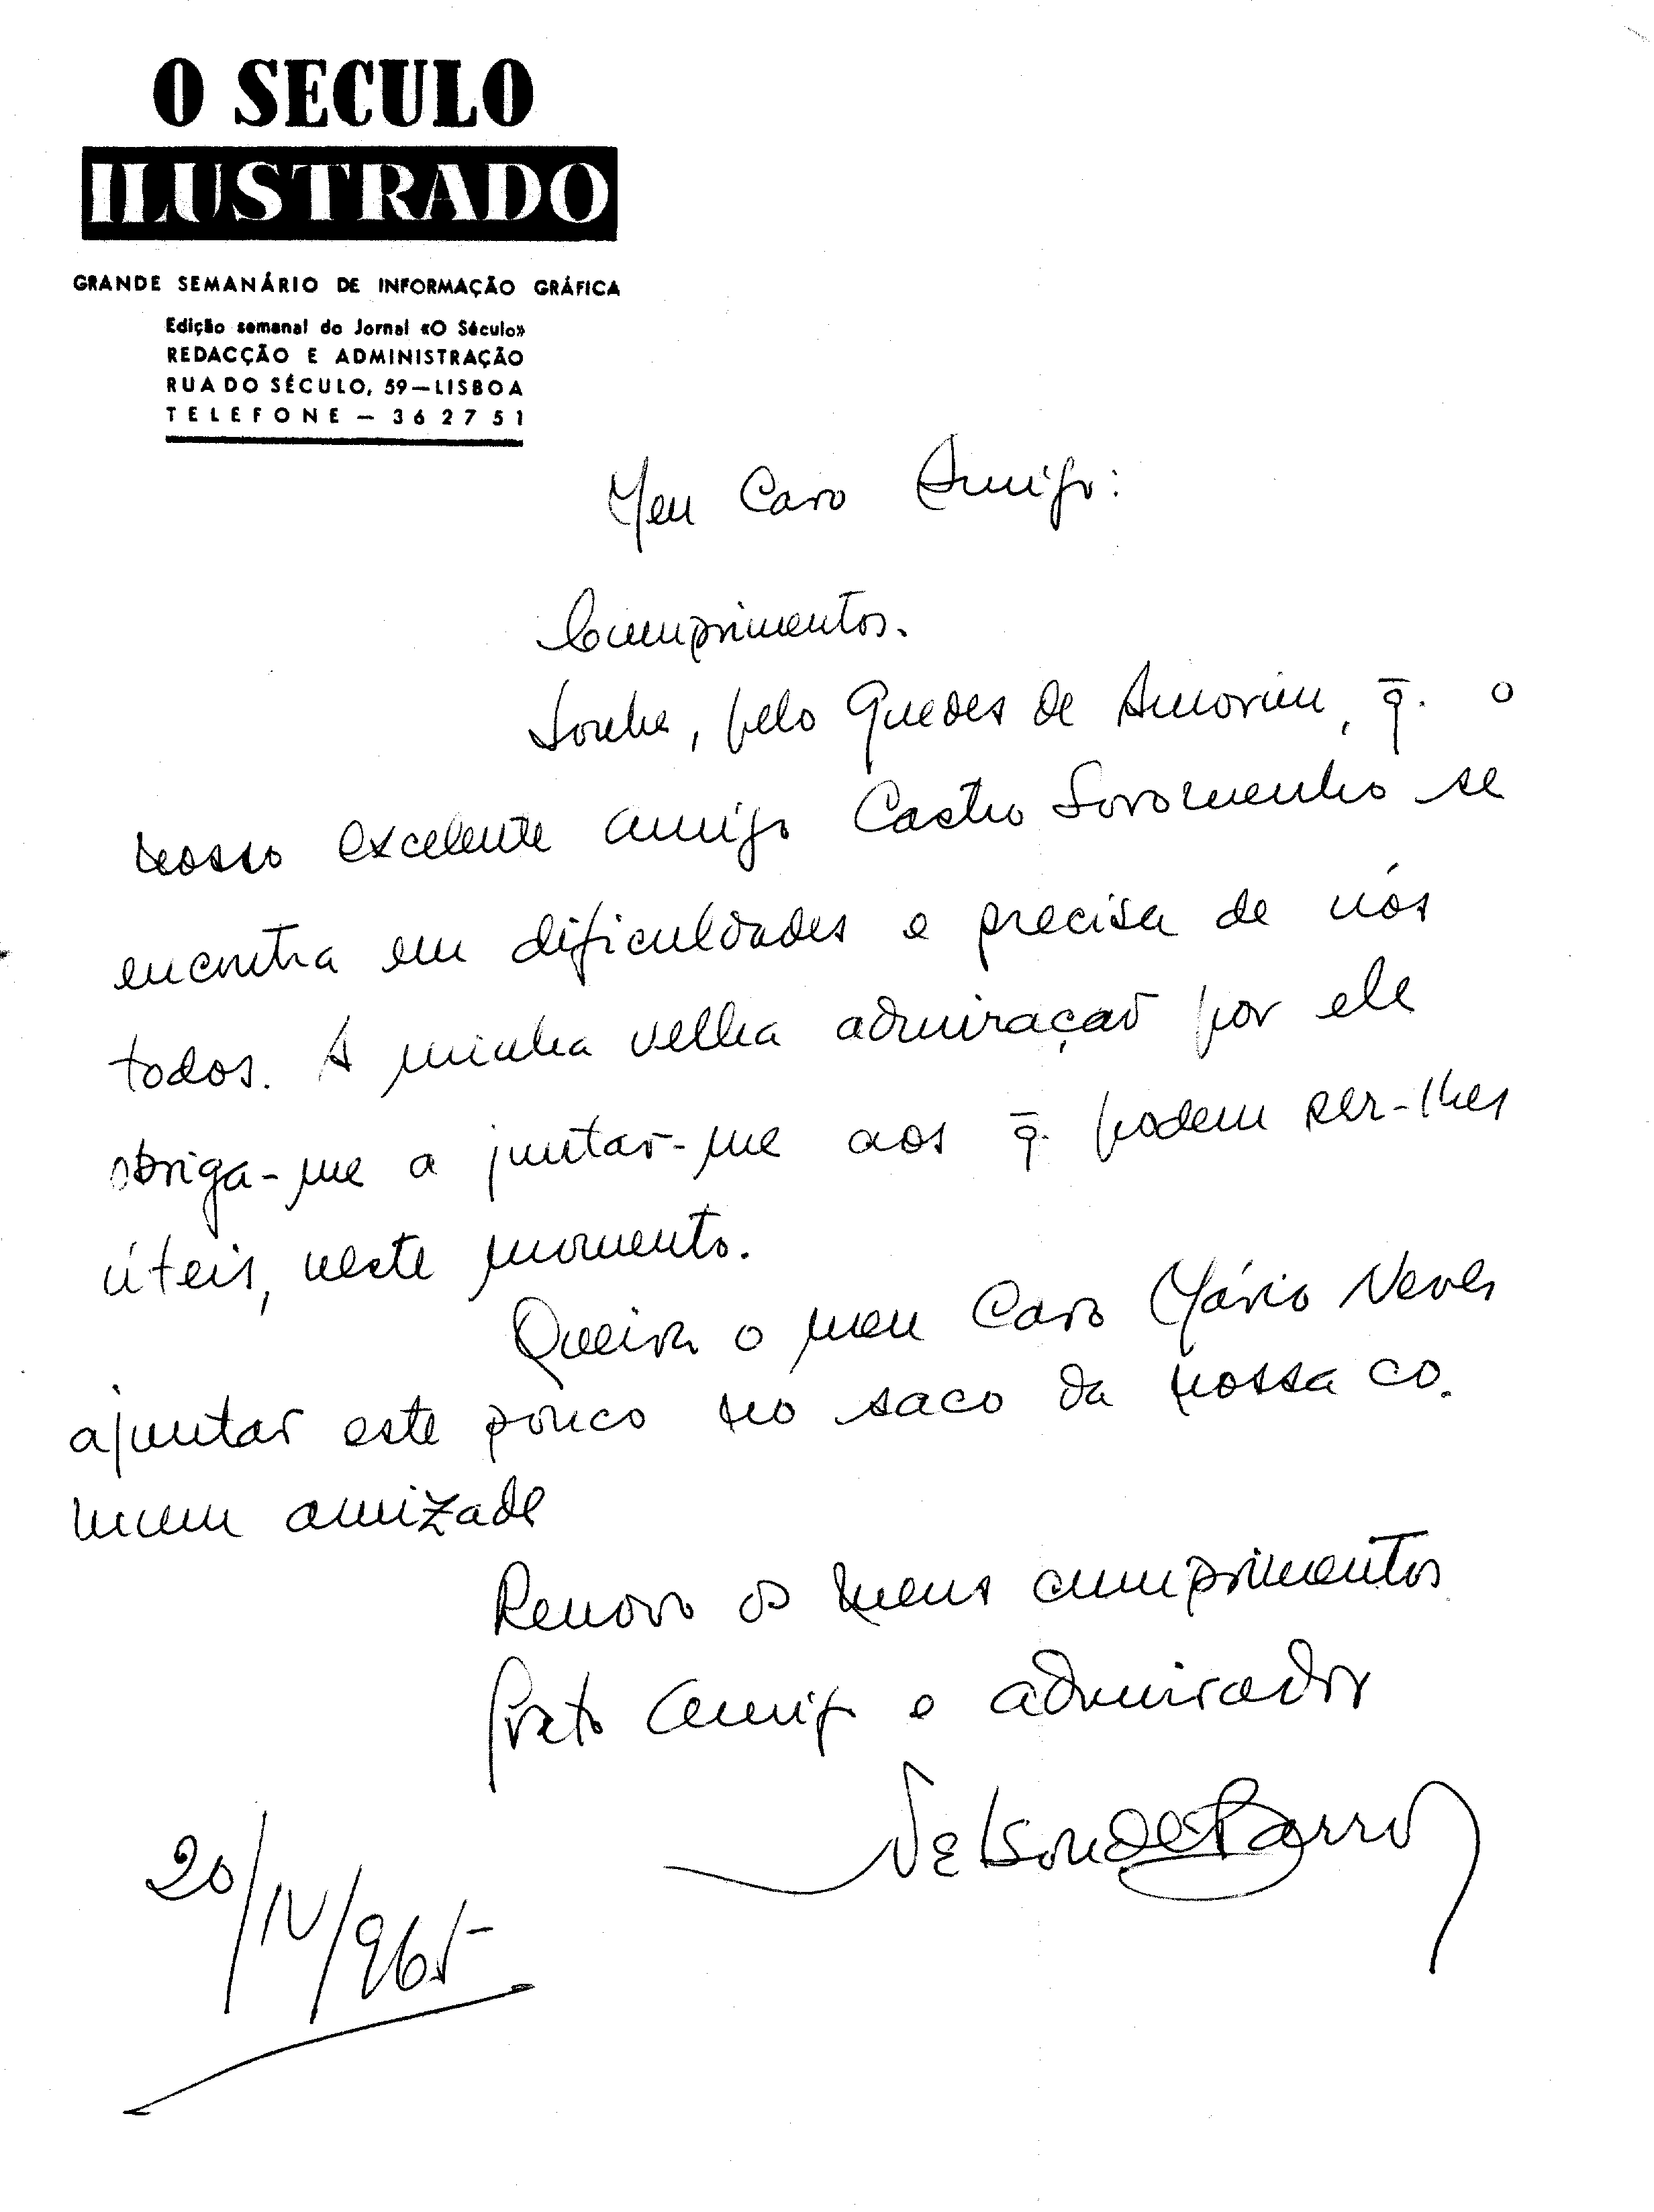 O SECULO
ILUSTRADO
GRANDE SEMANÁRIO DE INFORMAÇÃO GRÁFICA
Edição semanal do Jornal «O Século»
REDACÇÃO E ADMINISTRAÇÃO
RUA DO SÉCULO, 59—LISBOA
TELEFONE — 362751
Meu Caro Amigo:
Cumprimentos.
Soube, pelo Guedes de Amorim, q̄. o
nosso excelente amigo Castro Soromenho se
encontra em dificuldades e precisa de nós
todos. A minha velha admiração por ele
obriga-me a juntar-me aos q̄. podem ser-lhes
úteis, neste momento.
Queira o meu Caro Mário Neves
ajuntar este pouco no saco da nossa co.
mum amizade
Renovo os meus cumprimentos
Grato amigo e admirador
Nelson de Barros
20/IV/965